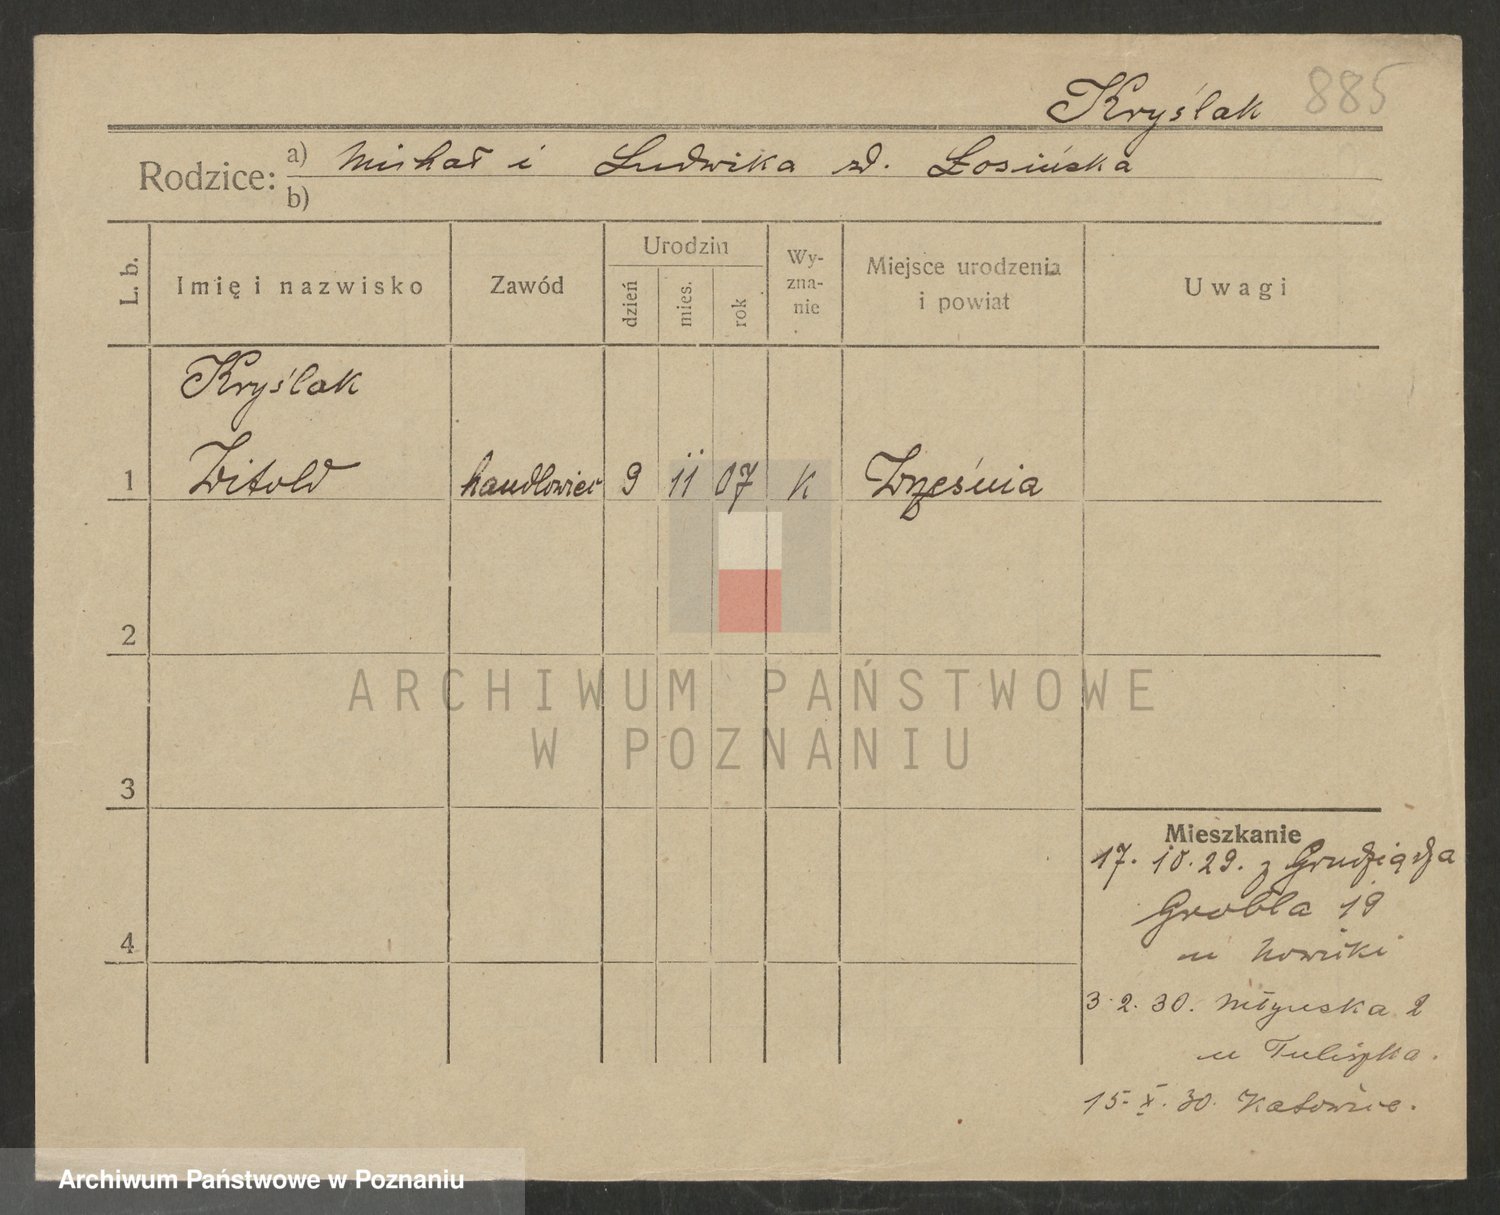 Kryślak 885
Rodzice: a) Michał i Ludwika zd. Łosińska
b)
L. b.
Imię i nazwisko
Zawód
Urodzin
dzień
mies.
rok
Wy-
zna-
nie
Miejsce urodzenia
i powiat
Uwagi
Kryślak
1 Witold handlowiec 9 11 07 K Września
2
3
4
Mieszkanie
17. 10. 29. z Grudziądza
Grobla 19
u Nowicki
3. 2. 30. Młyńska 2
u Tuliszka.
15. X. 30. Katowice.
ARCHIWUM PAŃSTWOWE
W POZNANIU
Archiwum Państwowe w Poznaniu